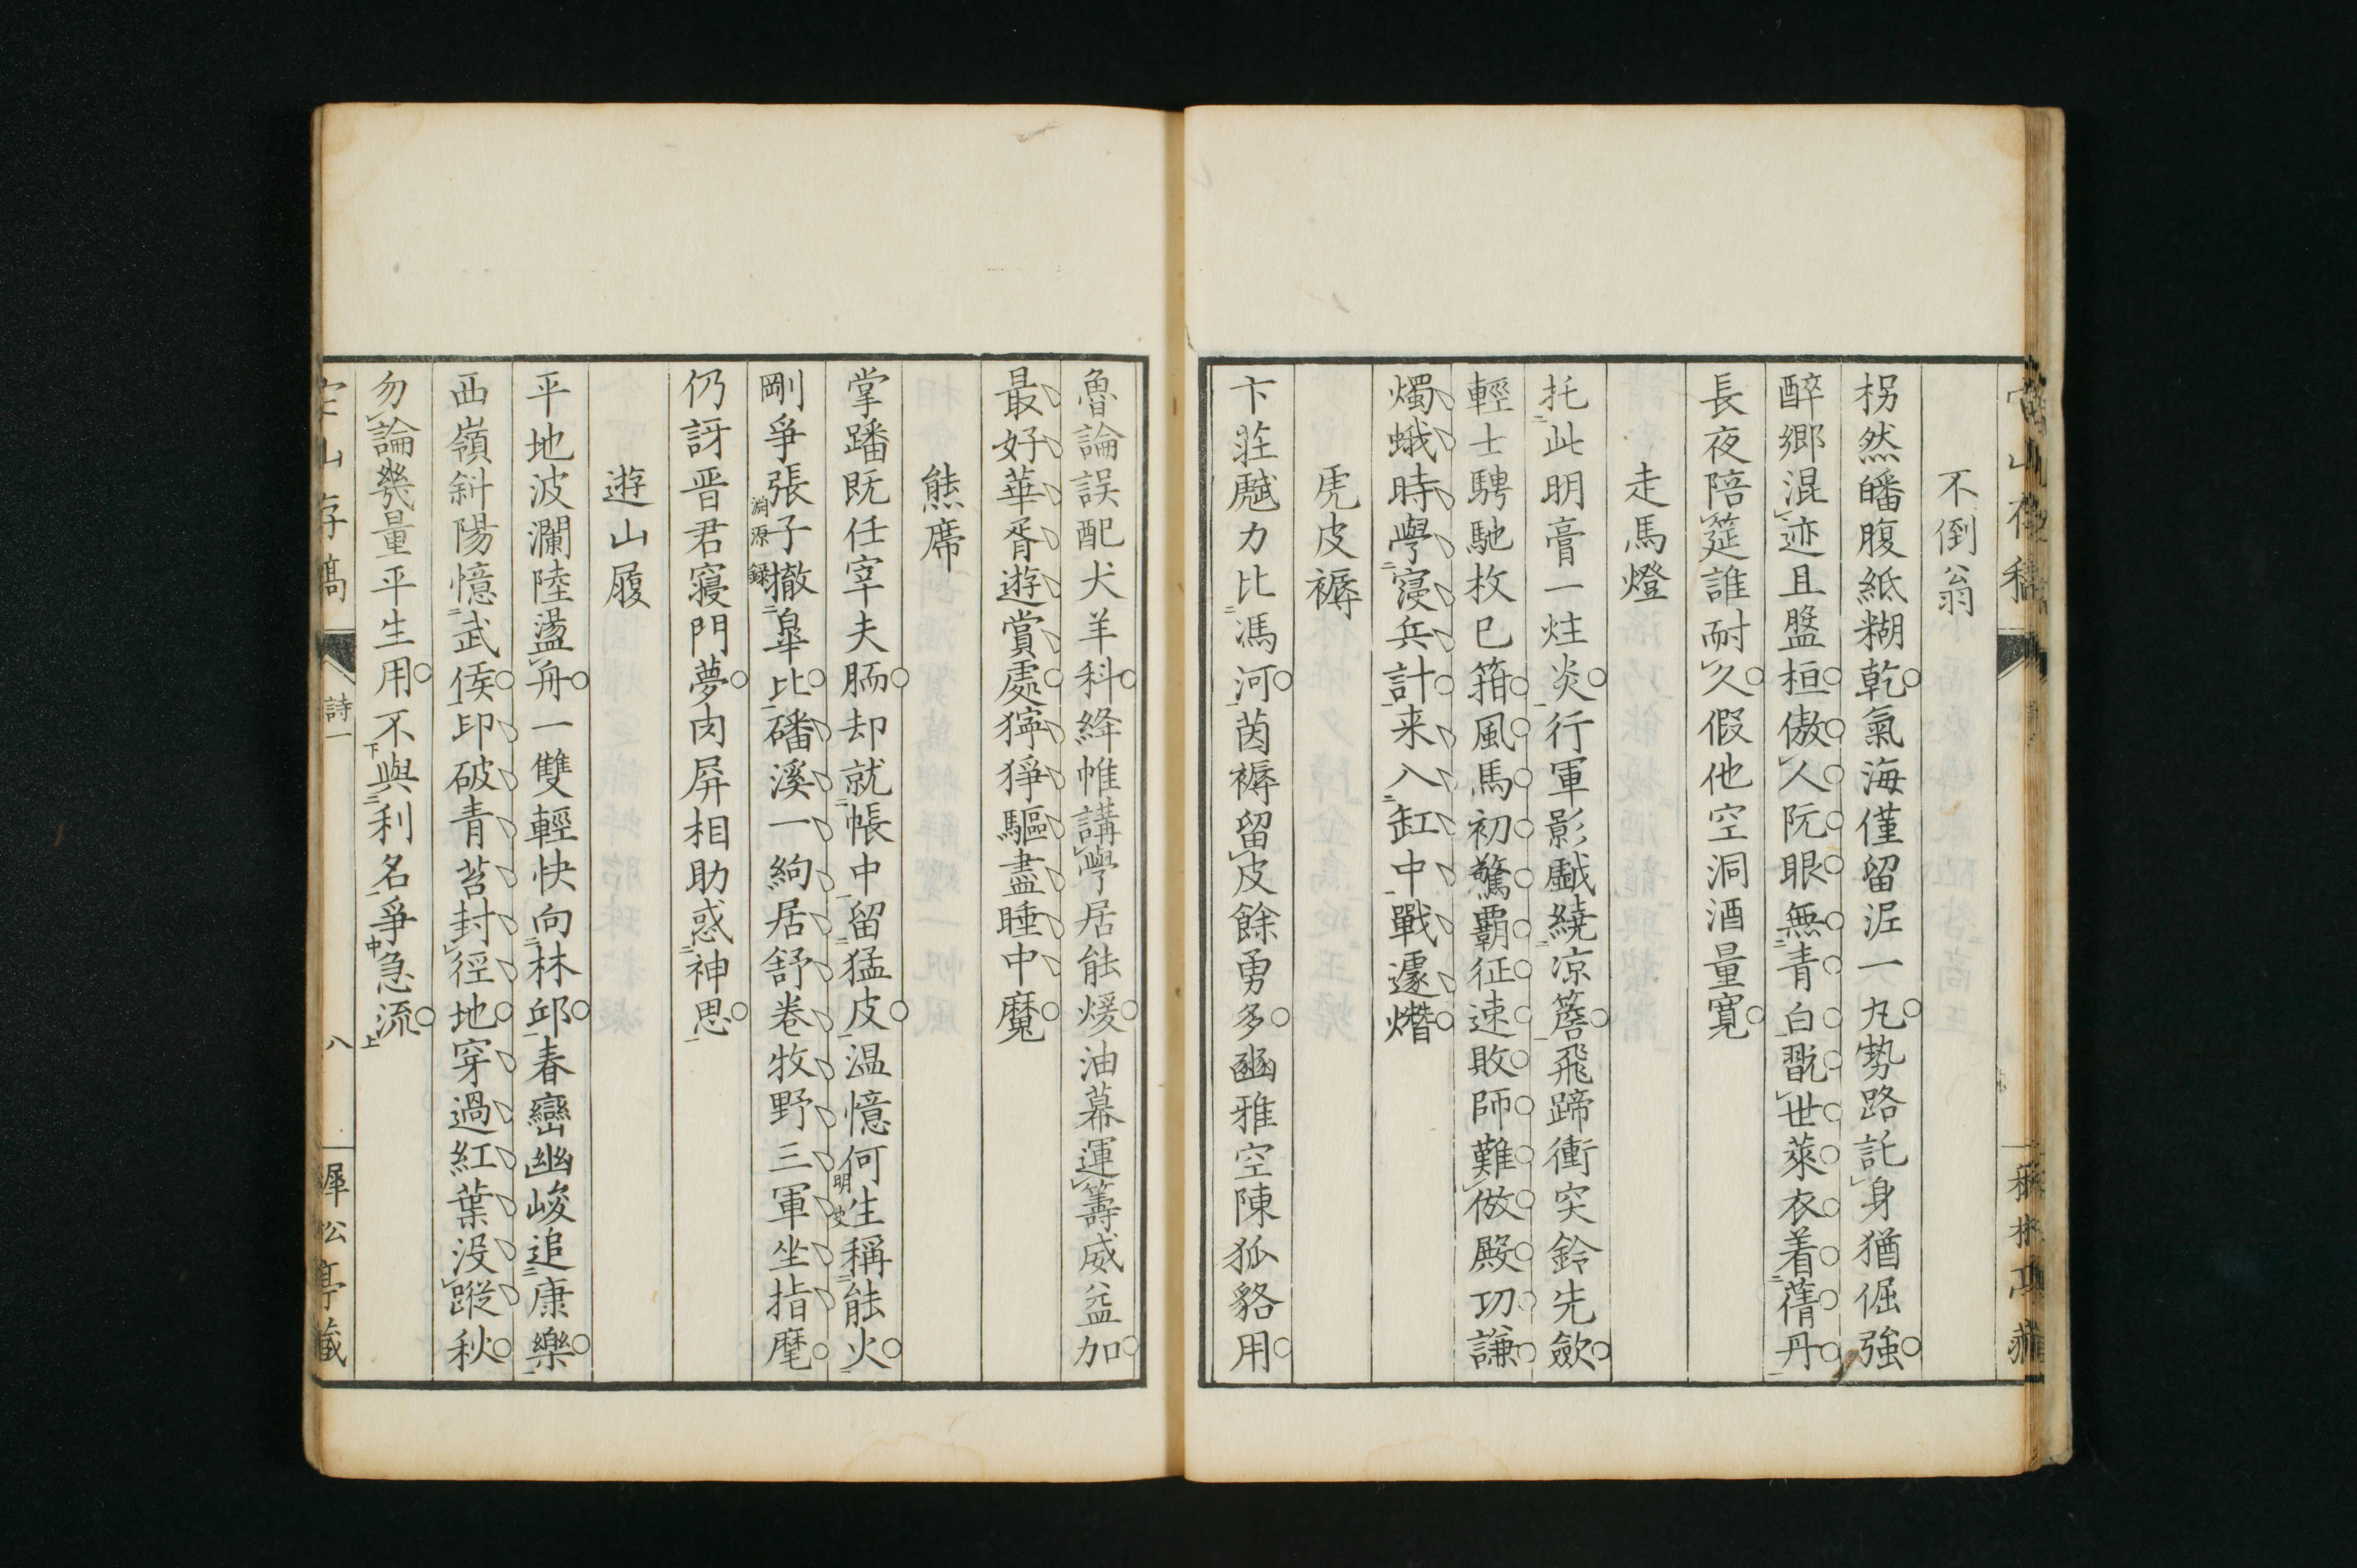 不倒翁
枴然皤腹紙糊乾氣海僅留泥一丸勢路託身猶倔強
醉鄉混迹且盤桓傲人阮眼無青白翫世萊衣着蒨丹
長夜陪筵誰耐久假他空洞酒量寬
走馬燈
托此明膏一炷炎行軍影戲繞凉簷飛蹄衝突鈴先歛
輕士騁馳枚已箝風馬初驚覇征速敗師難倣殿功謙
燭蛾時學寝兵計来八缸中戰遽熸
虎皮褥
卞莊贔力比馮河茵褥留皮餘勇多豳雅空陳狐貉用
魯論誤配犬羊科絳帷講學居能煖油幕運籌威益加
最好華胥遊賞處獰猙驅盡睡中魔
熊席
掌蹯既任宰夫胹却就帳中留猛皮温憶何生稱能火
明史
剛爭張子撤皐比磻溪一絇居舒卷牧野三軍坐指麾
淵源録
仍訝晋君寢門夢肉屏相助惑神思
遊山屐
平地波瀾陸盪舟一雙輕快向林邱春巒幽峻追康樂
西嶺斜陽憶武侯印破青苔封徑地穿過紅葉没蹤秋
勿論幾量平生用不與利名爭急流
山存稿
詩一
八
犀松亭藏